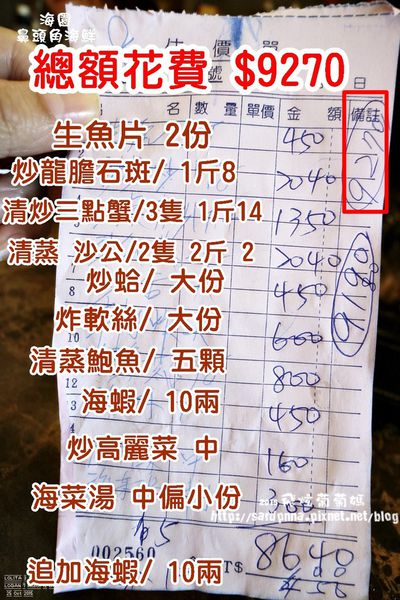 海園
鼻頭角海鮮
估價單
總額花費 $9270
號 日
名 數量 單價 金額 備註
9270
生魚片 2份 450
炒龍膽石斑/ 1斤8 2040
清炒三點蟹/3隻 1斤14 1350
清蒸 沙公/2隻 2斤 2 2040
炒蛤/ 大份 450
炸軟絲/ 大份 600
清蒸鮑魚/ 五顆 800
海蝦/ 10兩 450
炒高麗菜 中 160
海菜湯 中偏小份
2015 飛炫葡萄媽
http://sardonna.pixnet.net/blog
002560 NT$ 8640
追加海蝦/ 10兩 450
LOLITA
LOGAN
25 Oct 2015